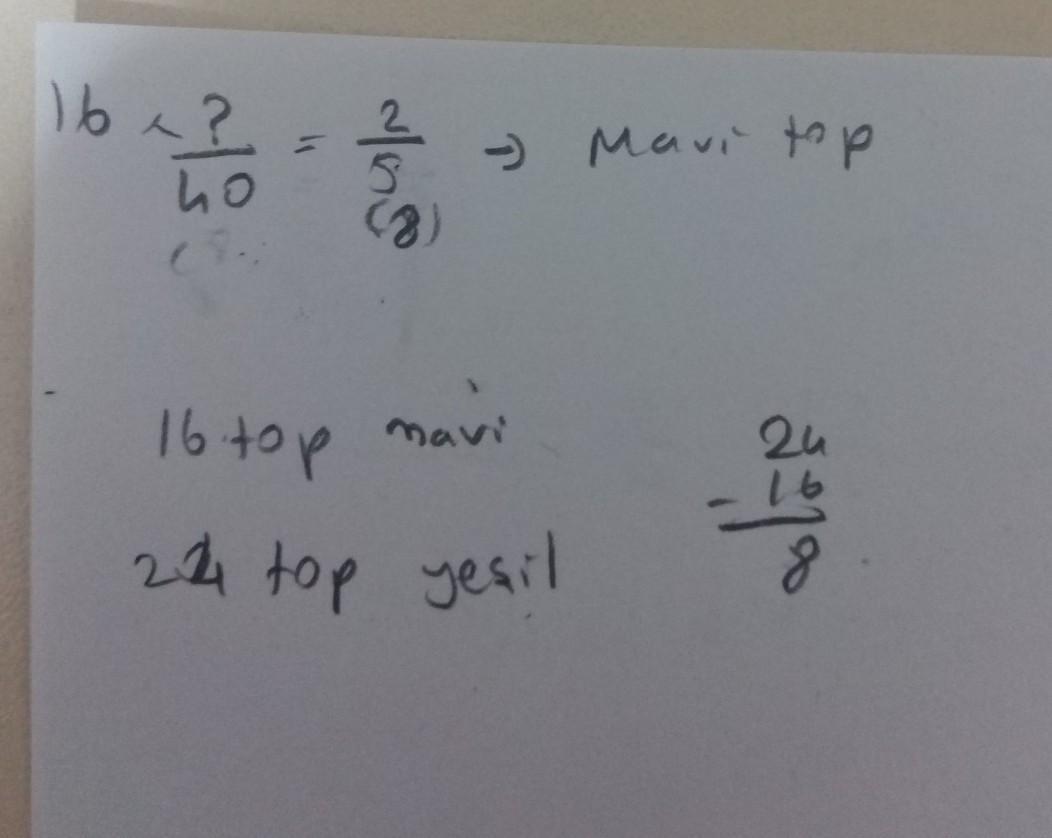 16 ← ?/40 = 2/5 → Mavi top
(8)
16 top mavi
24 top yeşil
24
- 16
8